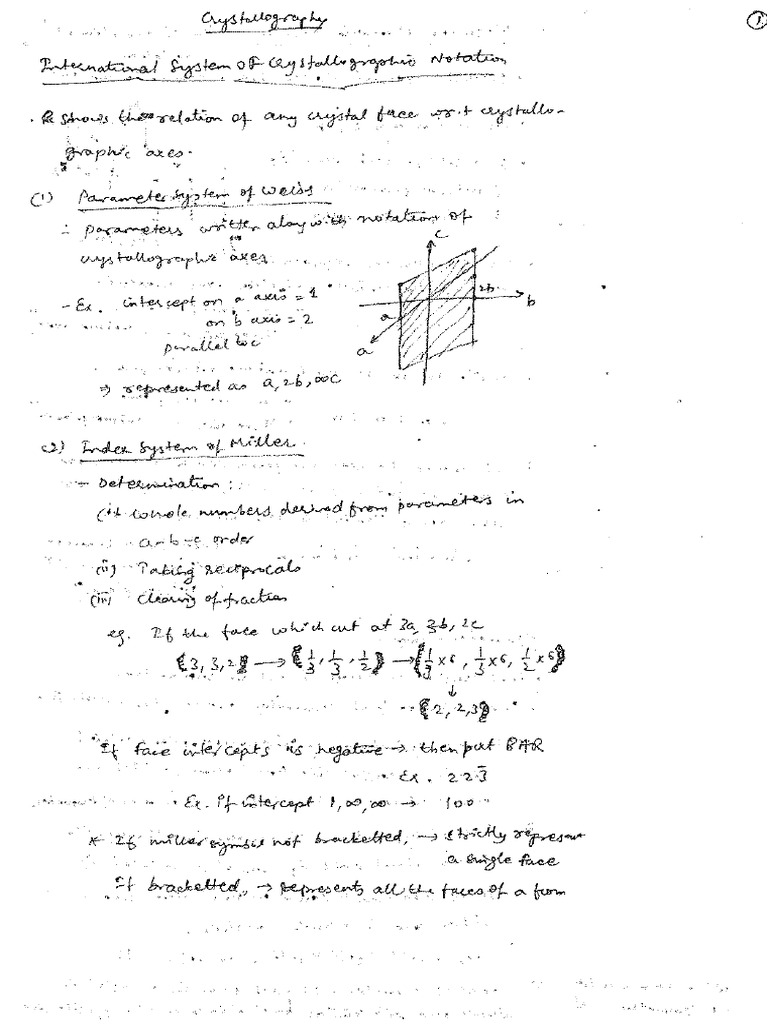 Crystallography
①
International System of Crystallographic Notation
. It shows the relation of any crystal face w.r.t crystallo-
graphic axes.
(1) Parameter System of Weiss
∴ parameters written along with notation of
crystallographic axes
- Ex. intercept on a axis = 1
on b axis = 2
parallel to c
⇒ represented as a, 2b, ∞c
c
2b
b
a
a
(2) Index System of Miller
- Determination :
(i) Whole numbers derived from parameters in
a-b-c order
(ii) Taking reciprocals
(iii) Clearing of fraction
eg. If the face which cut at 3a, 3b, 2c
{3, 3, 2} → {1/3, 1/3, 1/2} → {1/3 x 6, 1/3 x 6, 1/2 x 6}
↓
{2, 2, 3}
If face intercepts is negative → then put BAR
Ex. 2 2 3̄
Ex. if intercept 1, ∞, ∞ → 100
* If miller symbol not bracketted, → strictly represent
a single face
If bracketted, → represents all the faces of a form